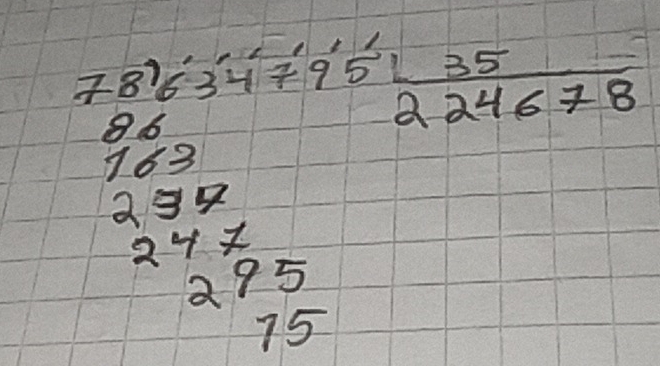 78634795 35
224678
86
163
234
247
295
15